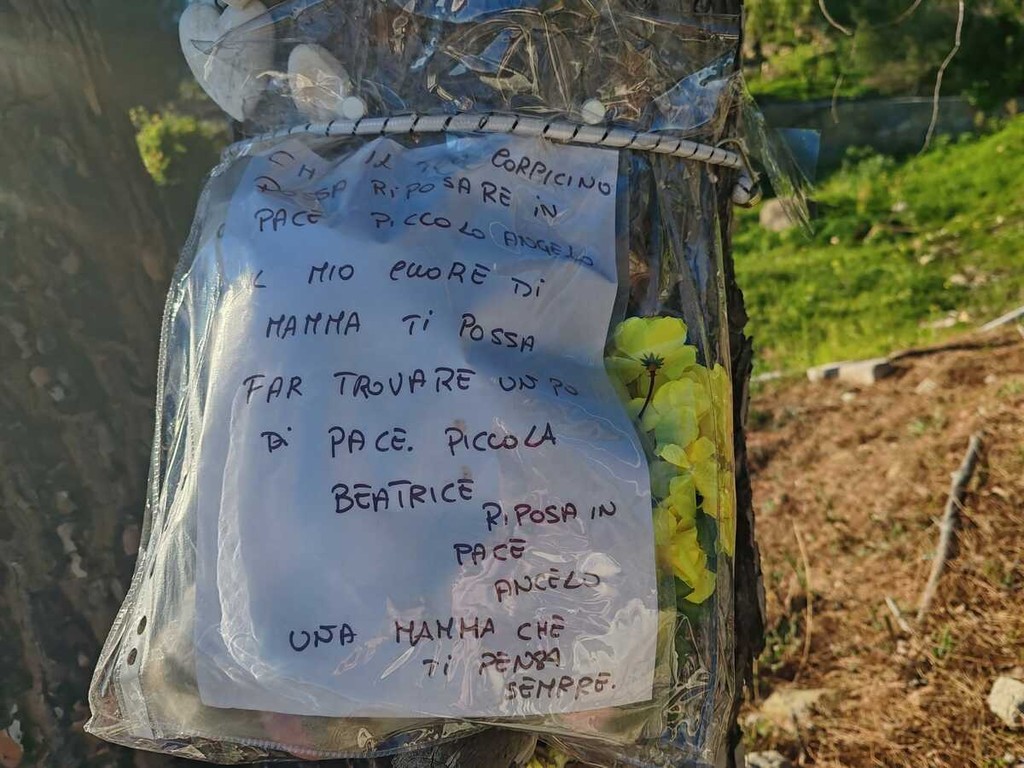 CHE IL TUO CORPICINO
POSSA RIPOSARE IN
PACE PICCOLO ANGELO
IL MIO CUORE DI
MAMMA TI POSSA
FAR TROVARE UN PO
DI PACE. PICCOLA
BEATRICE
RIPOSA IN
PACE
ANGELO
UNA MAMMA CHE
TI PENSA
SEMPRE.